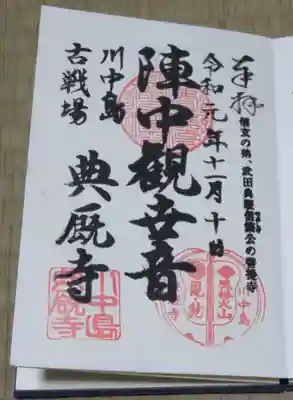 奉拝
信玄の弟、武田典厩信繁公の菩提寺
令和元年十一月十日
陣中観世音
川中島
古戦場
典厩寺
川中島
風林火山
川中島
典厩寺